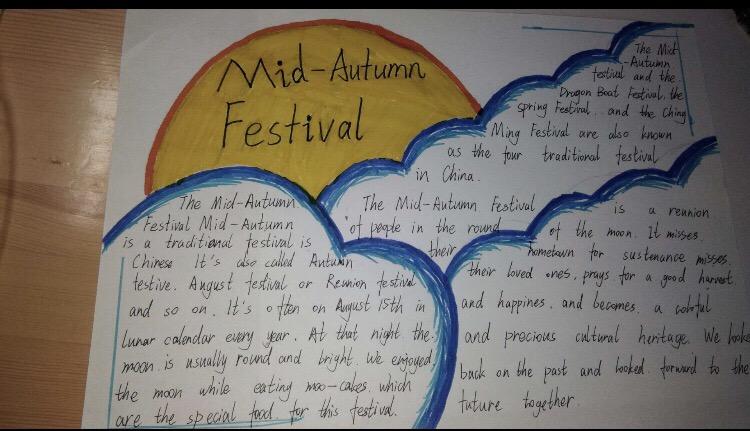 Mid-Autumn
Festival
The Mid-Autumn
Festival Mid-Autumn
is a traditional festival is
Chinese It's also called Autumn
testive. August festival or Reunion festival
and so on. It's often on August 15th in
lunar calendar every year. At that night the
moon is usually round and bright. We enjoyed
the moon while eating moo-cakes. which
are the special food for this festival.
The Mid
-Autumn
festival and the
Dragon Boat Festival, the
spring Festival.. and the Ching
Ming Festival are also known
as the four traditional festival
in China.
The Mid-Autumn Festival is a reunion
of people in the round of the moon. It misses
their hometown for sustenance misses
their loved ones, prays for a good harvest
and happines, and becomes a colorful
and precious cultural heritage. We looke
back on the past and looked forward to the
future together.